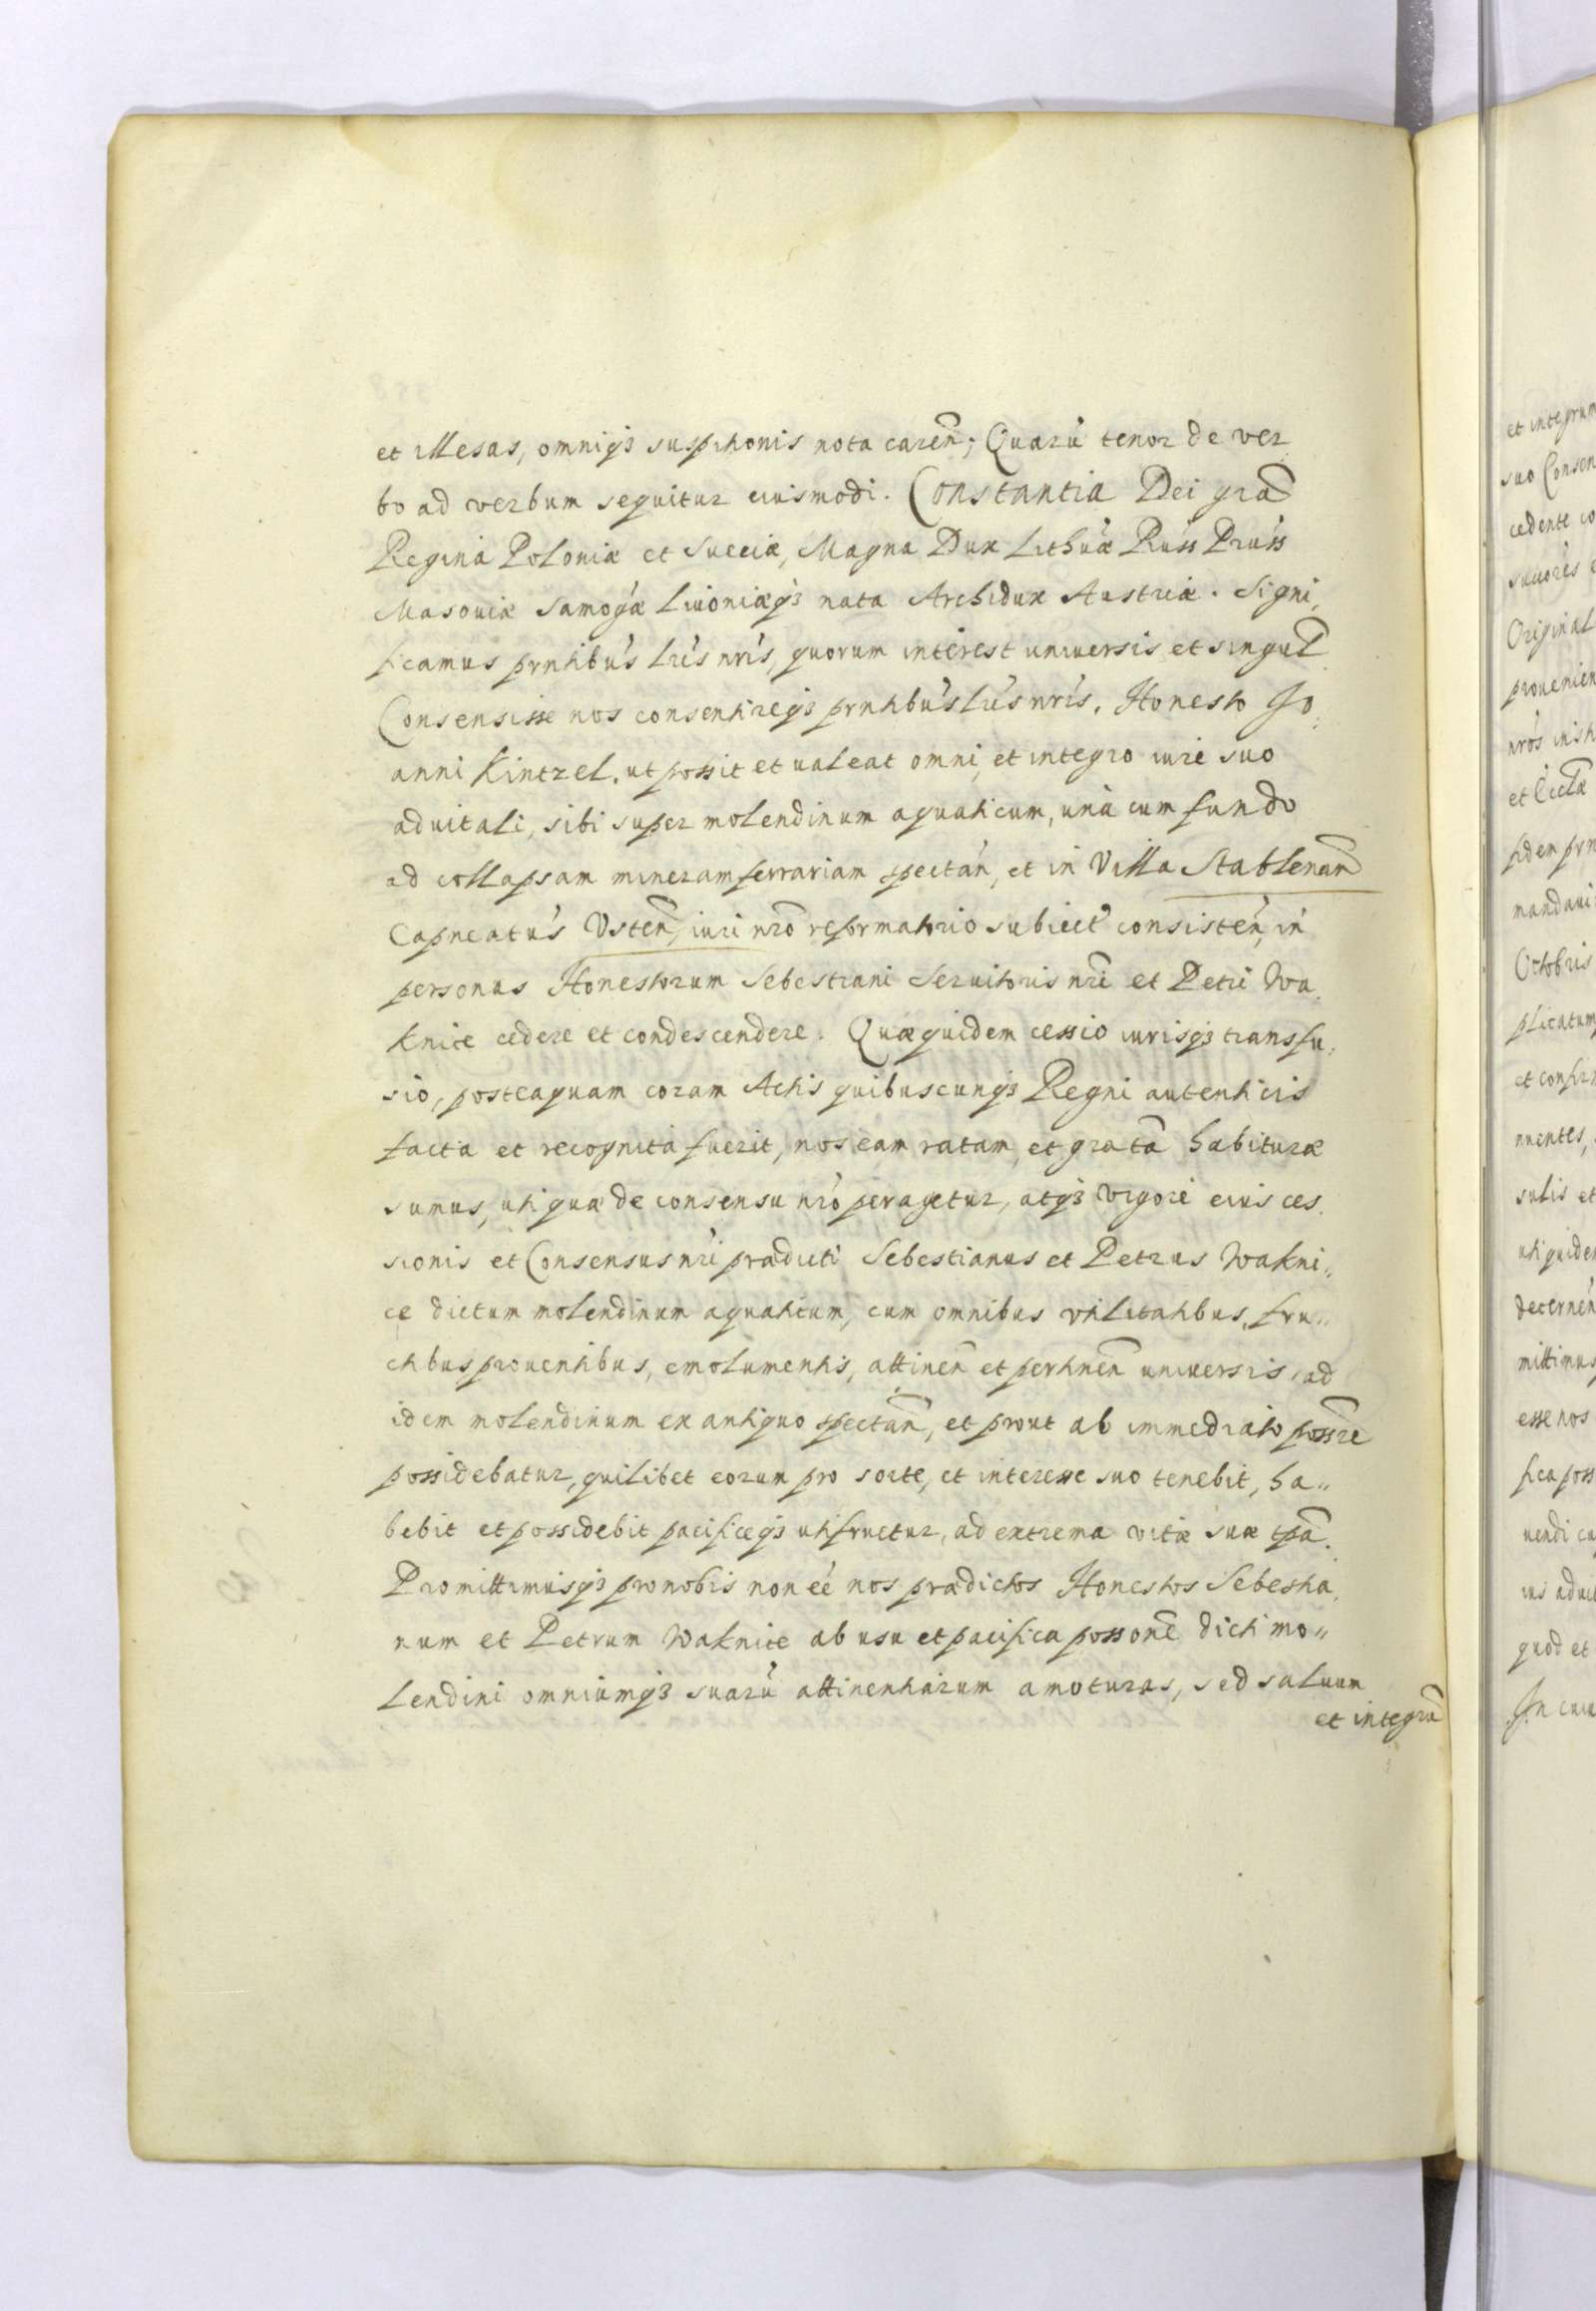 et illesas, omniq3 suspitionis nota caren̄; Quarū tenor de ver,
bo ad verbum sequitur eiusmodi. Constantia Dei gra͠
Regina Poloniæ et Sueciæ, Magna Dux Lithuæ Russ Pruss
Masouiæ Samogæ Liuoniæq3 nata Archidux Austriæ. Signi,
ficamus prntibus lris nris, quorum interest uniuersis et singul
Consensisse nos consentireq3 prntibus lris nris, Honesto Jo,
anni Kintzel, ut possit et ualeat omni, et integro iure suo
aduitali, sibi super molendinum aquaticum, unà cum fundo
ad collapsam mineram ferrariam spectan̄, et in Villa Stablenan̄
Capneatus Vsten̄, iuri nro reformatorio subiect consisten̄, in
personas Honestorum Sebestiani Seruitoris nri et Petri Wa,
knice cedere et condescendere. Quæquidem cessio iurisq3 transfu,
sio, posteaquam coram Actis quibuscunq3 Regni autenticis
facta et recognita fuerit, nos eam ratam, et gratā habituræ
sumus, uti quæ de consensu nrō peragetur, atq3 vigore eius ces,
sionis et Consensus nri prædicti Sebestianus et Petrus Wakni„
ce dictum molendinum aquaticum, cum omnibus vtilitatibus, fru„
ctibus prouentibus, emolumentis, attinen̄ et pertinen̄ uniuersis, ad
idem molendinum ex antiquo spectan̄, et prout ab immediato possre
possidebatur, quilibet eorum pro sorte, et interesse suo tenebit, ha„
bebit et possidebit pacificeq3 utifruetur, ad extrema vitæ suæ tpā.
Promittimusq3 pro nobis non eē nos prædictos Honestos Sebestia,
num et Petrum Waknice ab usu et pacifica possonē dicti mo„
lendini omniumq3 suarū attinentiarum amoturas, sed saluum
et integrū